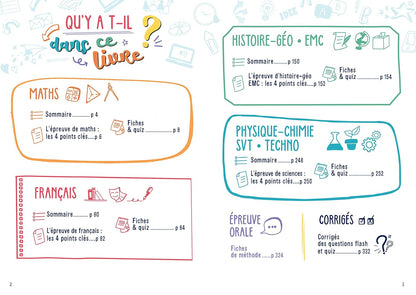 QU'Y A T-IL
dans ce
livre ?
MATHS
Sommaire..........p 4
L'épreuve de maths :
les 4 points clés....p 6
Fiches
& quiz ..............p 8
FRANÇAIS
Sommaire..........p 90
L'épreuve de français :
les 4 points clés....p 92
Fiches
& quiz ..............p 94
2
HISTOIRE-GÉO • EMC
Sommaire..........p 150
L'épreuve d'histoire-géo
EMC : les 4 points clés...p 152
Fiches
& quiz ..............p 154
PHYSIQUE-CHIMIE
SVT • TECHNO
Sommaire ..........p 248
L'épreuve de sciences :
les 4 points clés....p 250
Fiches
& quiz ..............p 252
ÉPREUVE
ORALE
Fiches
de méthode......p 324
CORRIGÉS
Corrigés
des questions flash
et quiz...........p 332
3